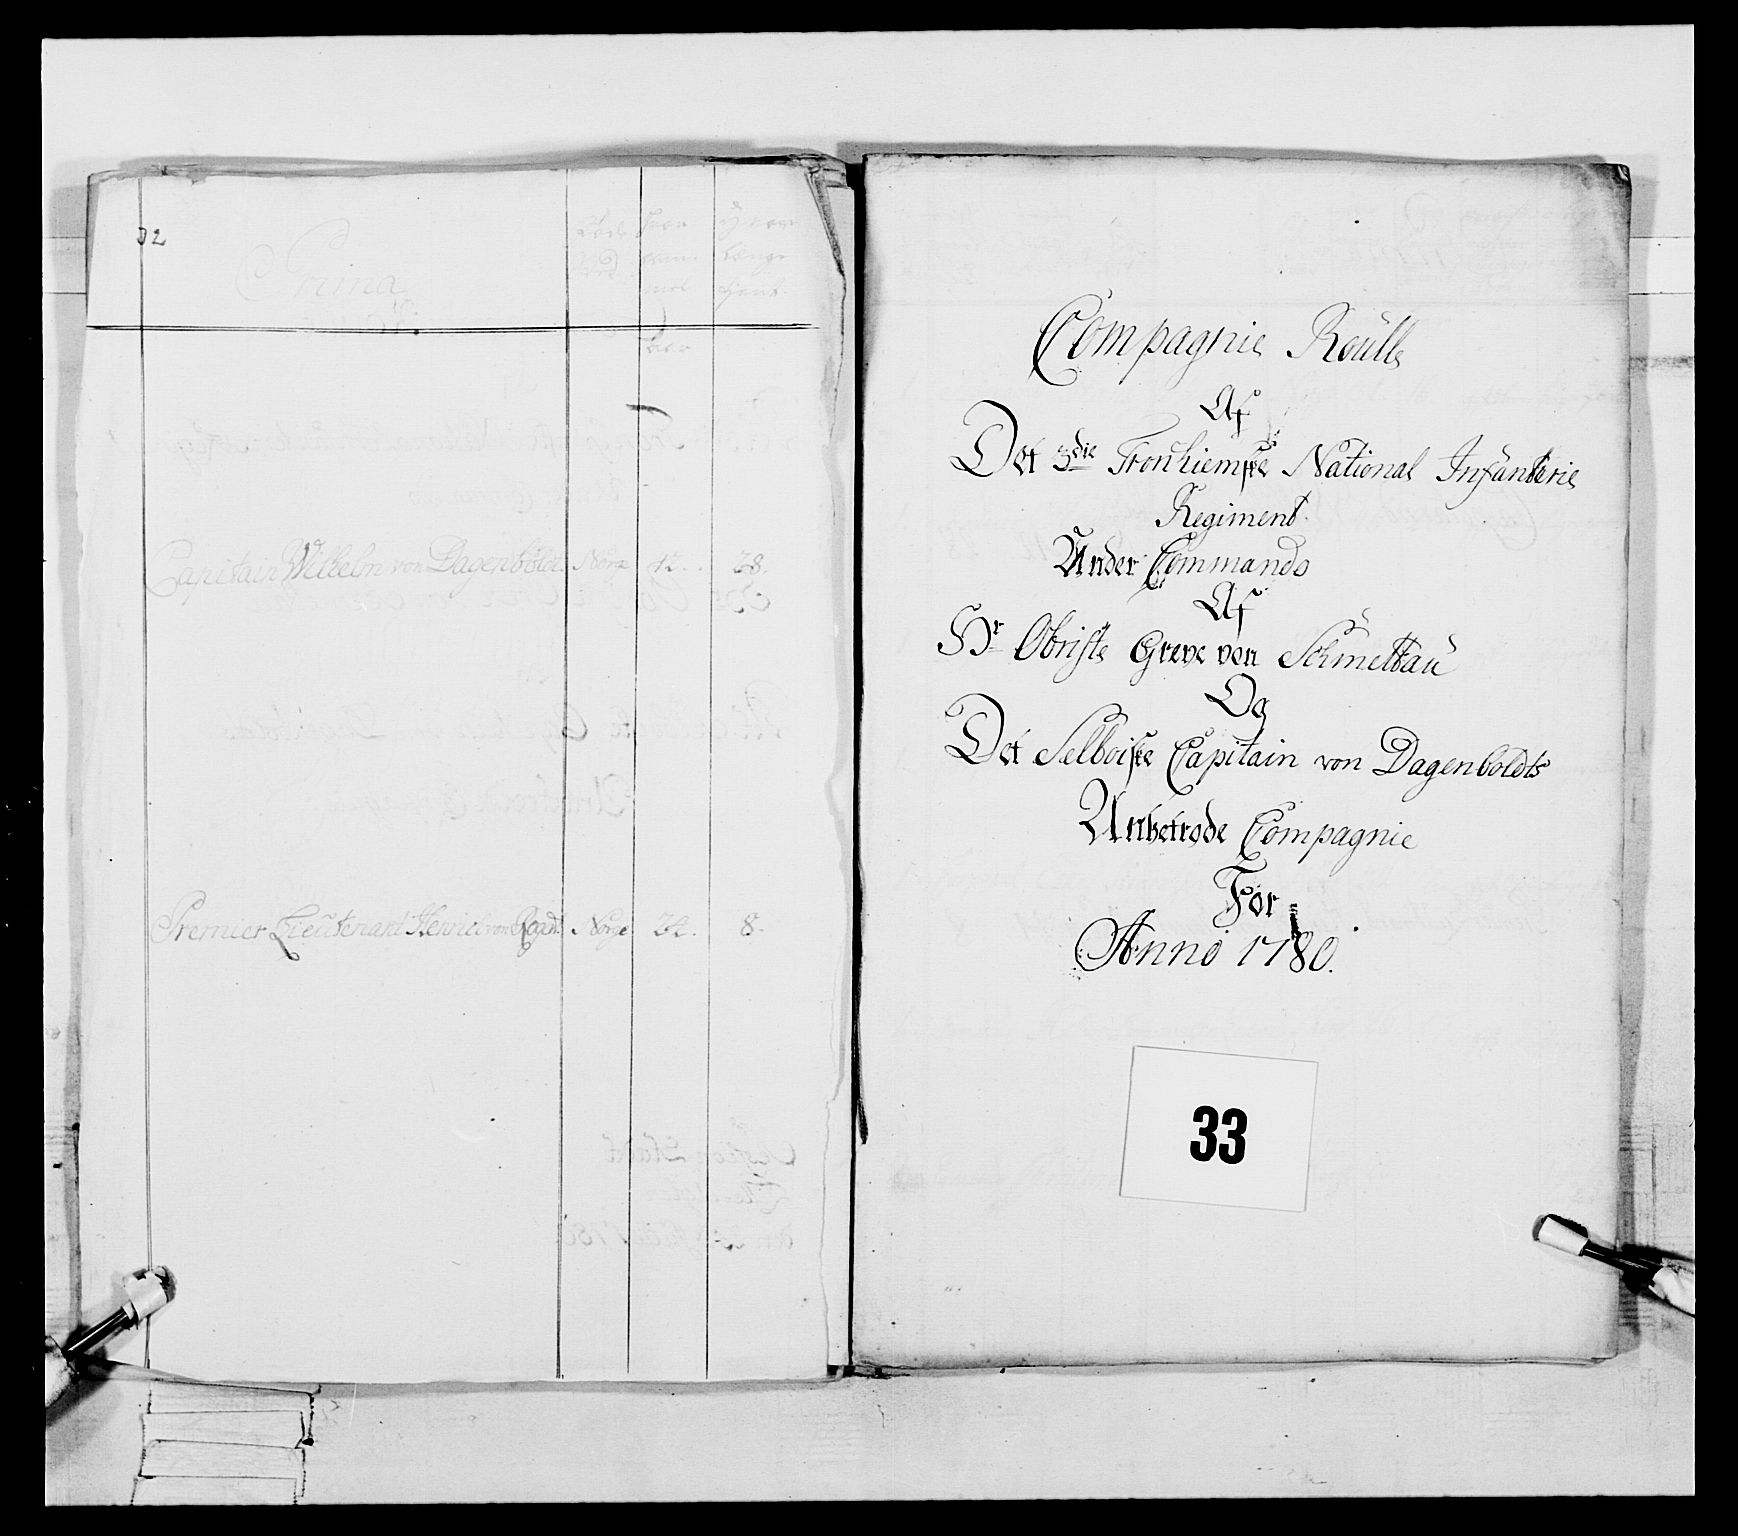 32
Prima
Capitain Wilhelm von Dagenboldt. Norge 42. 28.
Premier Lieutenant Henrich von Norge 24. 8.
Compagnie Roulle
Af
Det 3die Tronhiemske National Infanterie
Regiment.
Under Commando
Af
Hr Obriste Greve von Schmettau
Og
Det Selboiske Capitain von Dagenboldts
Anbetrode Compagnie
For
Anno 1780.
33